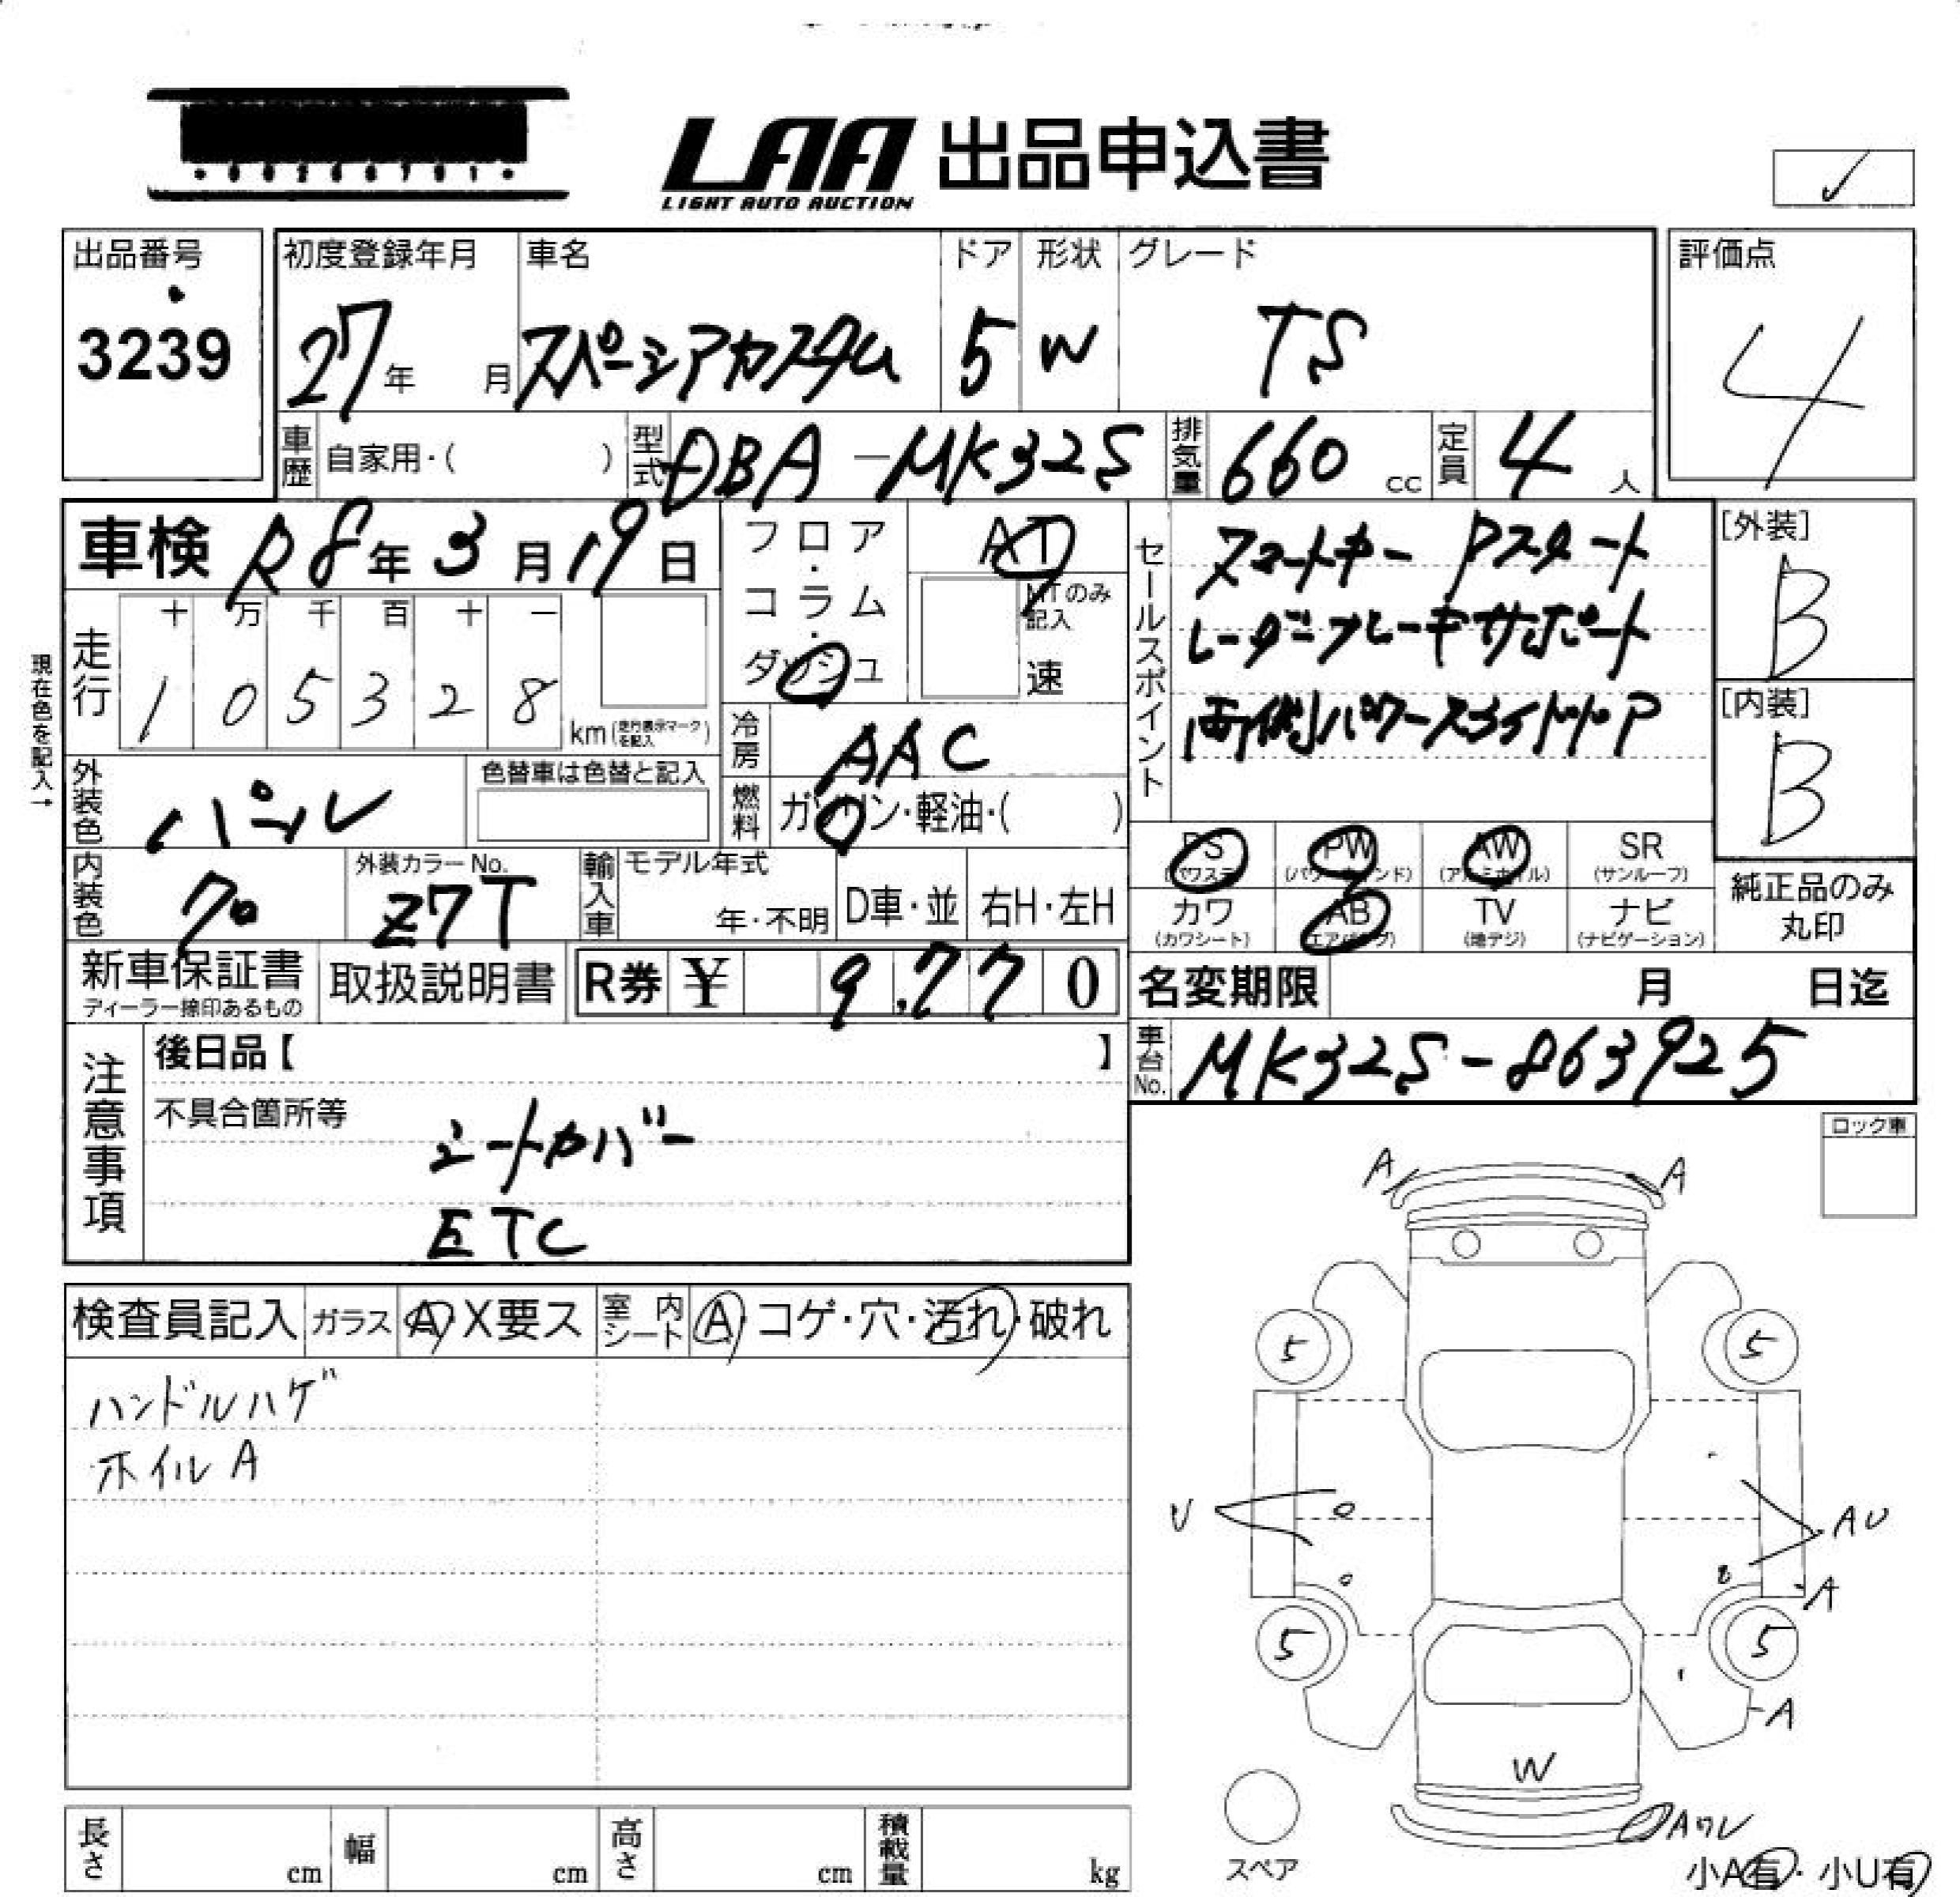 LAA 出品申込書
LIGHT AUTO AUCTION
出品番号
3239
初度登録年月 車名 ドア 形状 グレード
27年 月 スペーシアカスタム 5 W TS
評価点
4
車歴 自家用・( ) 型式 DBA-MK32S 排気量 660 cc 定員 4 人
車検 R8年3月19日
フロア・コラム・ダッシュ
AT
MTのみ記入
速
セールスポイント
スマートキー Pスタート
レーダーブレーキサポート
両側パワースライドドア
[外装]
B
[内装]
B
現在色を記入→
走行
十 万 千 百 十 一
1 0 5 3 2 8
km(走行表示マークを記入)
冷房 AAC
外装色 パール
色替車は色替と記入
燃料 ガソリン・軽油・( )
内装色 クロ
外装カラーNo.
Z7T
輸入車 モデル年式
年・不明 D車・並 右H・左H
PS PW AW SR
(パワステ) (パワーウインド) (アルミホイル) (サンルーフ)
カワ AB TV ナビ
(カワシート) (エアバッグ) (地デジ) (ナビゲーション)
純正品のみ
丸印
新車保証書
ディーラー捺印あるもの
取扱説明書
R券 ¥ 9,770
名変期限 月 日迄
車台No. MK32S-863925
注意事項
後日品【 】
不具合箇所等
シートカバー
ETC
ロック車
検査員記入 ガラス A X要ス 室内シート A・コゲ・穴・汚れ・破れ
ハンドルハゲ
ホイルA
A A
5 5
U AU
A
5 5
A
W
Aワレ
スペア
小A有・小U有
長さ cm 幅 cm 高さ cm 積載量 kg